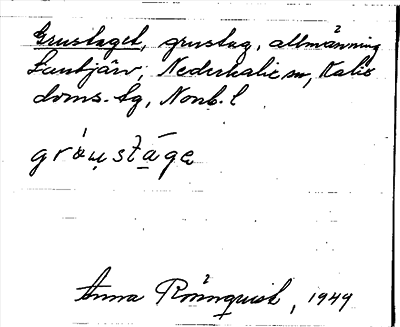 Grustaget, grustag, allmänning
Lantjärv, Nederkalix sn, Kalix
doms. tg, Nonb. l
gròu̯stá̱ge
Anna Rönnquist, 1949